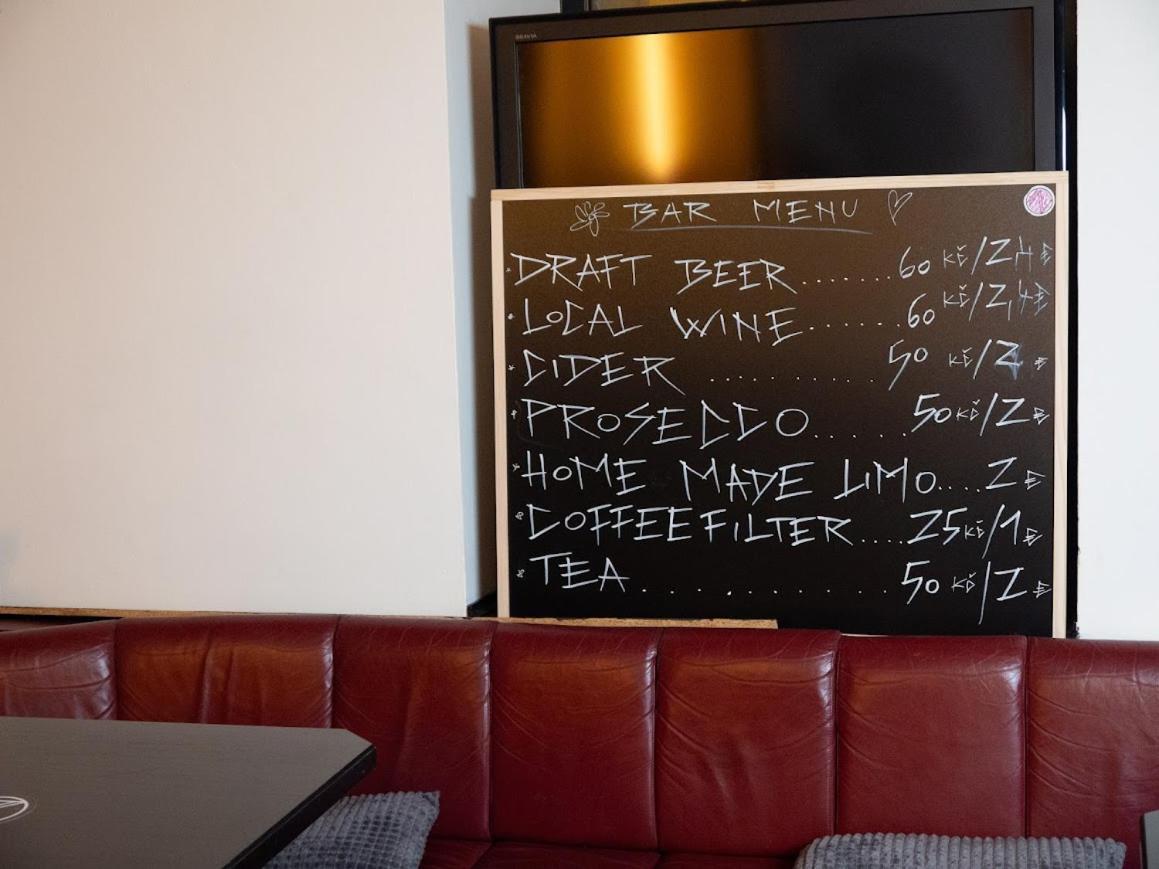 BRAVIA
BAR MENU
DRAFT BEER........60 Kč/2,4 €
LOCAL WINE........60 Kč/2,4 €
CIDER ...........50 Kč/2 €
PROSECCO......50 Kč/2 €
HOME MADE LIMO....2 €
COFFEE FILTER....25 Kč/1 €
TEA ............50 Kč/2 €